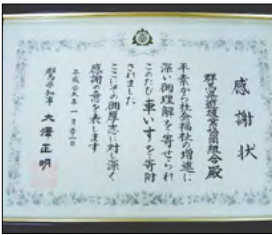 感謝状
群馬県遊技業協同組合殿
平素から社会福祉の増進に
深い御理解を寄せられ
このたび車いすを寄附
されました
ここにその御厚志に対し深く
感謝の意を表します
平成廿九年一月廿一日
群馬県知事 大澤正明